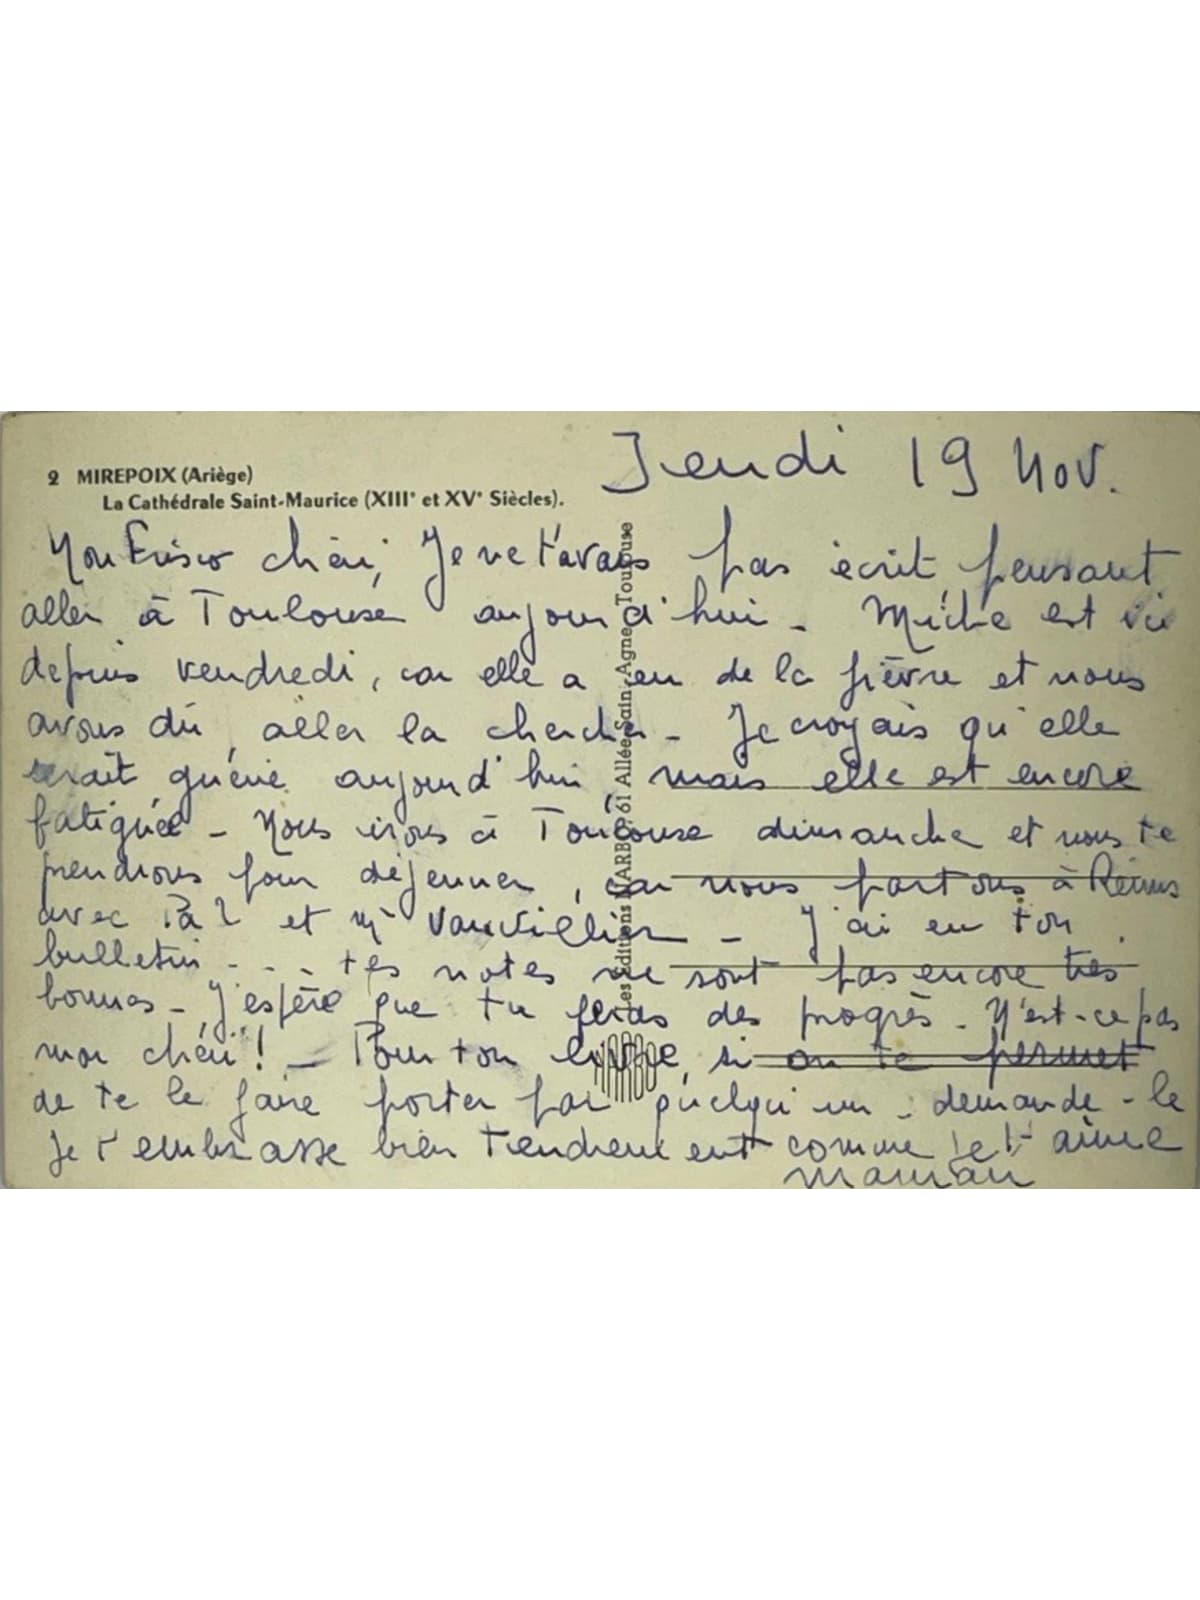 Jeudi 19 Nov.
2 MIREPOIX (Ariège)
La Cathédrale Saint-Maurice (XIIIe et XVe Siècles).
Mon chéri, Je ne t'avais pas écrit, pensant
aller à Toulouse aujourd'hui - Miche est ici
depuis vendredi, car elle a eu de la fièvre et nous
avons dû aller la chercher - Je croyais qu'elle
serait guérie aujourd'hui mais elle est encore
fatiguée - Nous irons à Toulouse dimanche et nous te
prendrons pour déjeuner, car nous partons à Reims
avec et
bulletin - - - tes notes ne sont pas encore très
J'ai eu ton
bonnes - J'espère que tu feras des progrès - N'est-ce pas
mon chéri ! - Pour ton livre, si on te permet
de te le faire porter par quelqu'un - demande-le
Je t'embrasse bien tendrement comme je t'aime
maman
Les Editions 61 Allée Sain-Agne Toulouse